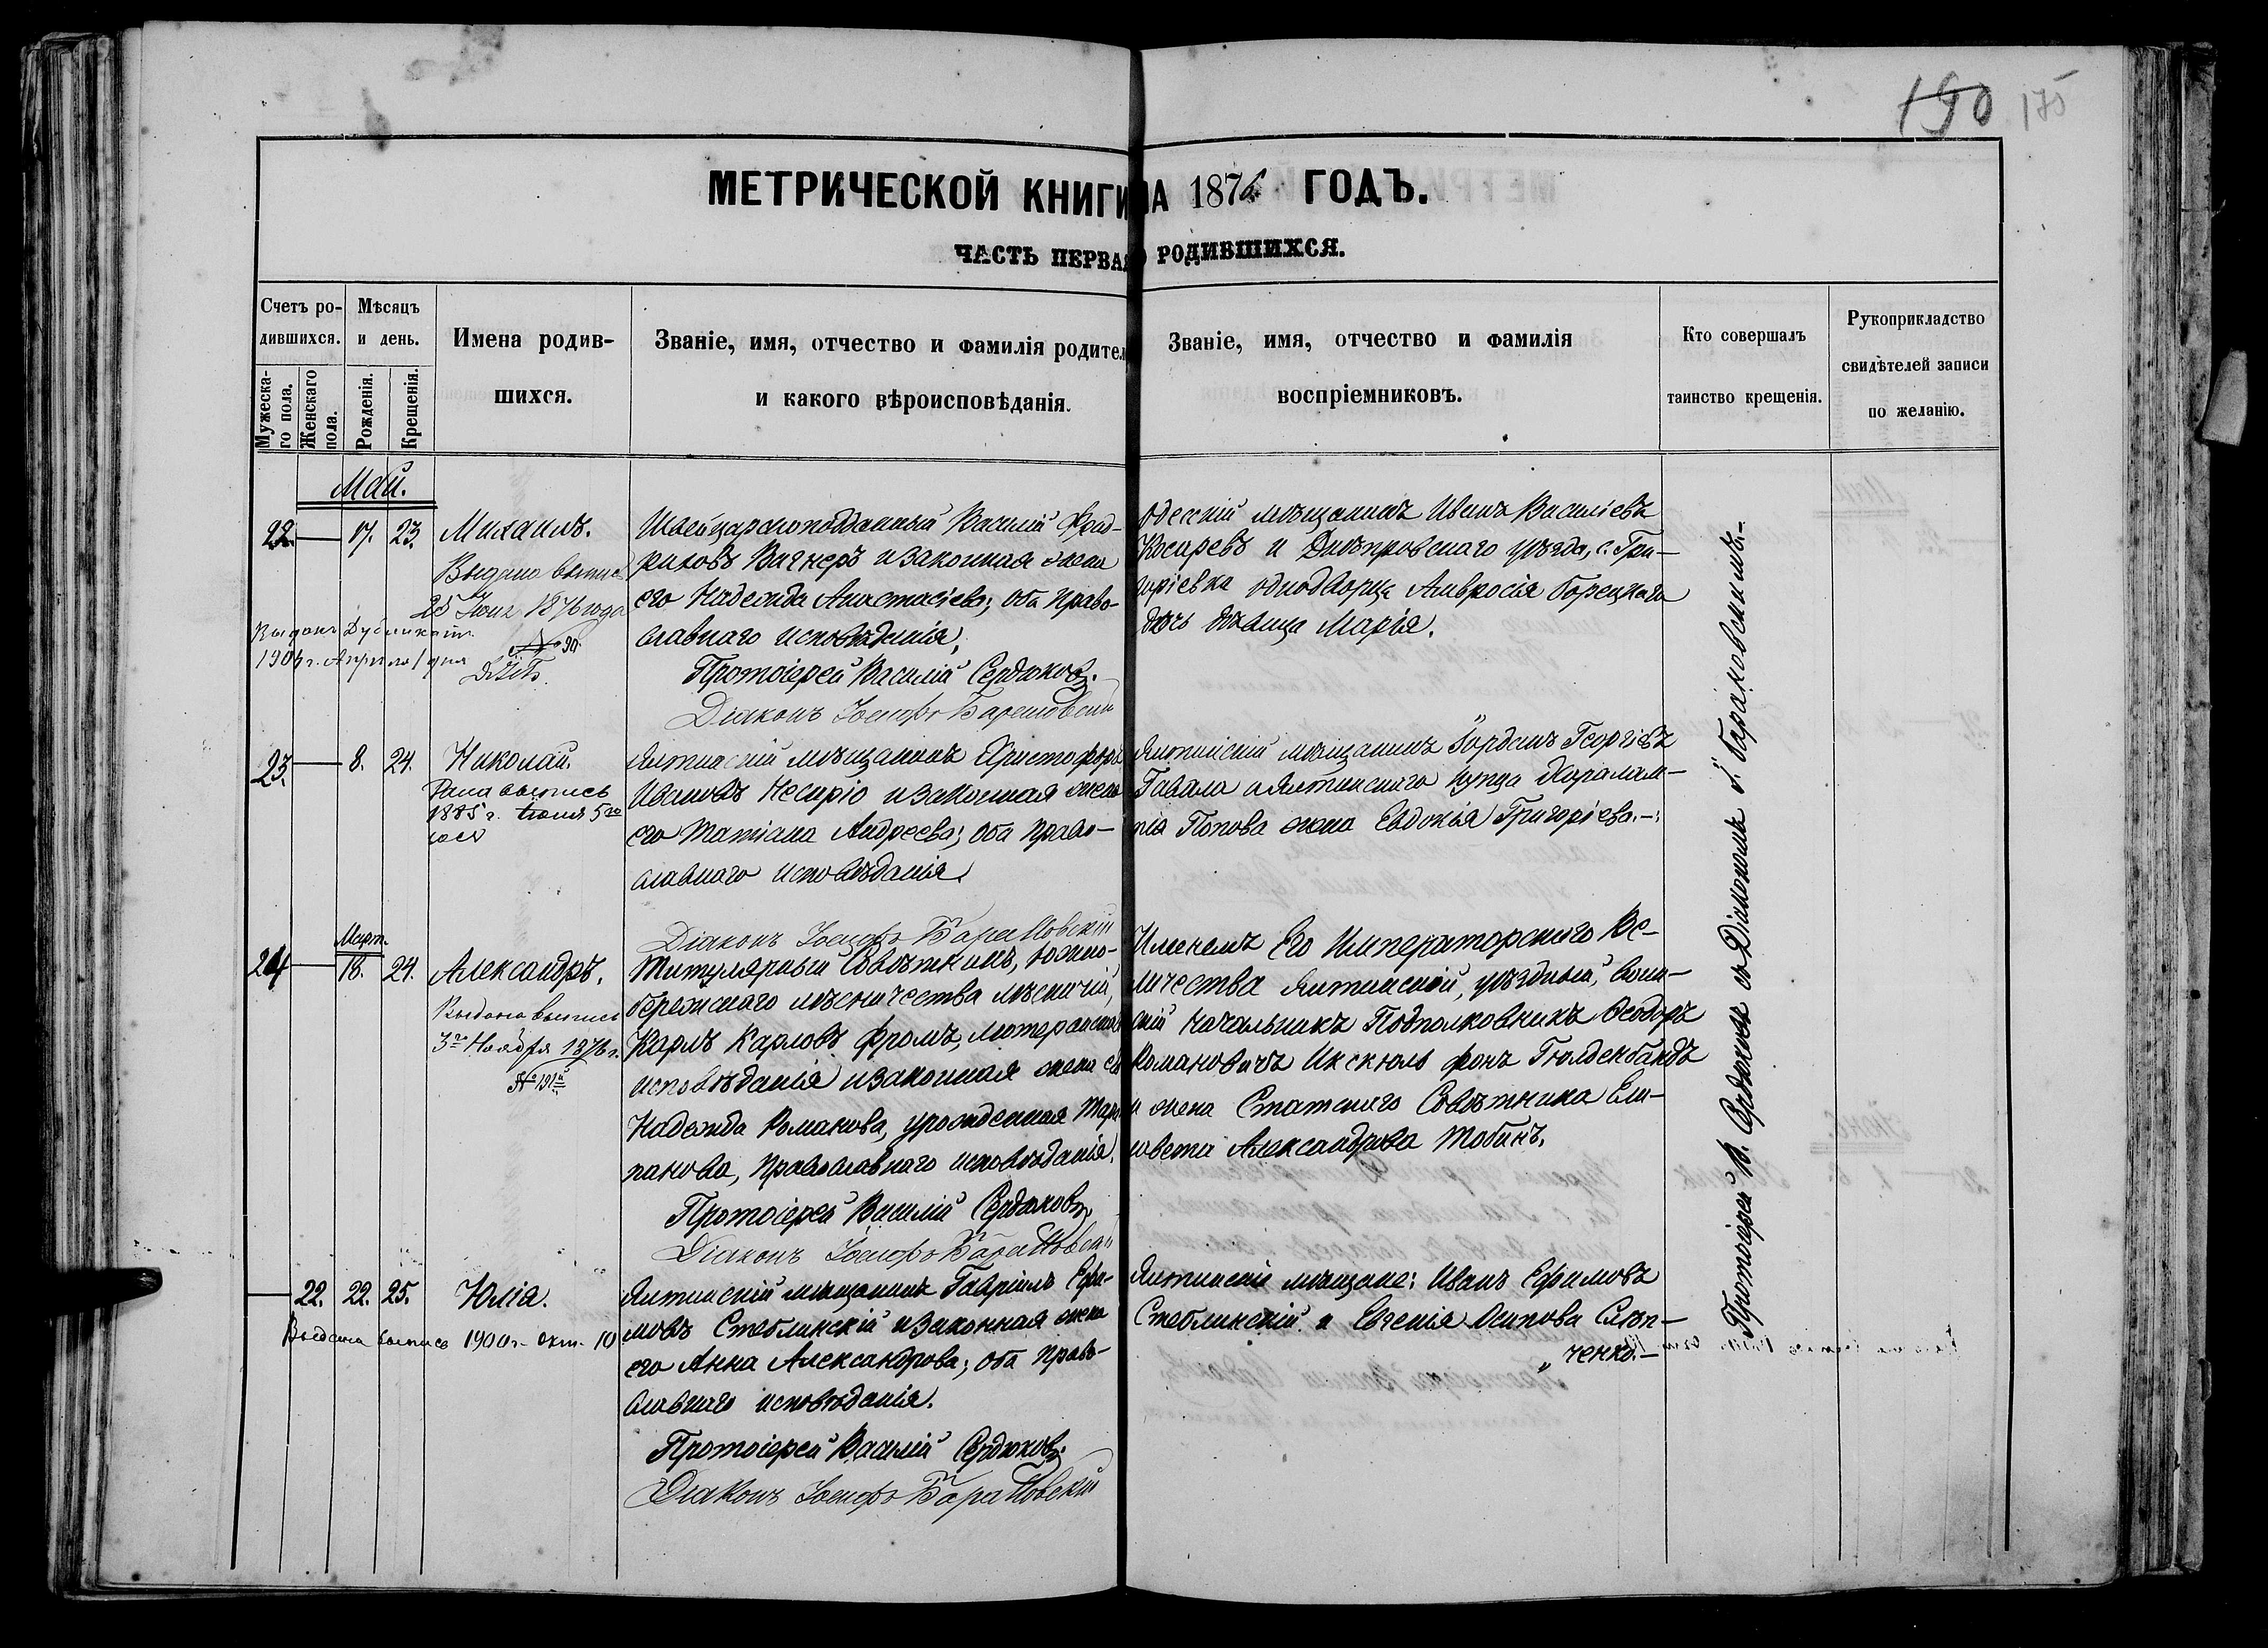 150 175
МЕТРИЧЕСКОЙ КНИГИ НА 1876 ГОДЪ.
ЧАСТЬ ПЕРВАЯ О РОДИВШИХСЯ.
Счетъ ро-
дившихся.
Мужеска-
го пола.
Женскаго
пола.
Мѣсяцъ
и день.
Рожденія.
Крещенія.
Имена родив-
шихся.
Званіе, имя, отчество и фамилія родител
и какого вѣроисповѣданія.
Званіе, имя, отчество и фамилія
воспріемниковъ.
Кто совершалъ
таинство крещенія.
Рукоприкладство
свидѣтелей записи
по желанію.
Май.
22. — 17. 23. Михаилъ.
Выдана выпись
25 Іюня 1876 года
№ 90
Выданъ Дубликатъ
1904 г. Апрѣля 1 дня
Швейцарскоподданный Василій Фрид-
риховъ Вагнеръ и законная жена
его Надежда Анастасіева; оба право-
славнаго исповѣданія.
Протоіерей Василій Сердюковъ.
Діаконъ Іосифъ Барановскій
Одесскій мѣщанинъ Иванъ Васильевъ
Косаревъ и Днѣпровскаго уѣзда, с. Гри-
горіевка однодворца Амвросія Борецкаго
дочь дѣвица Марія.
23. — 8. 24. Николай.
Дана выпись
1885 г. Іюня 5го
дня
Ялтинскій мѣщанинъ Христофоръ
Ивановъ Несиріо и законная жена
его Татіана Андреева; оба право-
славнаго исповѣданія.
Діаконъ Іосифъ Барановскій
Ялтинскій мѣщанинъ Іорданъ Георгіевъ
Гавала и Ялтинскаго купца Харалам-
пія Попова жена Евдокія Григоріева.
Март.
24 — 18. 24. Александръ.
Выдана выпись
3го Ноября 1876 г.
№ 191й
Титулярный Совѣтникъ, южно-
бережскаго лѣсничества лѣсничій,
Карлъ Карловъ Фромъ, лютеранскаго
исповѣданія и законная жена его
Надежда Романова, урожденная Тар-
панова, православнаго исповѣданія.
Протоіерей Василій Сердюковъ
Діаконъ Іосифъ Барановскій
Именемъ Его Императорскаго Ве-
личества Ялтинскій, уѣздный, воин-
скій начальникъ Подполковникъ Ѳеодоръ
Романовичъ Икскюль фонъ Гюлденбандъ
и жена Статскаго Совѣтника Ели-
савета Александрова Тобинъ.
— 22. 22. 25. Юлія.
Выдана выпись 1900 г. окт. 10
Ялтинскій мѣщанинъ Гавріилъ Ефи-
мовъ Стеблинскій и законная жена
его Анна Александрова; оба право-
славнаго исповѣданія.
Протоіерей Василій Сердюковъ.
Діаконъ Іосифъ Барановскій
Ялтинскіе мѣщане: Иванъ Ефимовъ
Стеблинскій и Евгенія Осипова Слѣп-
ченко.—
Протоіерей В. Сердюковъ съ Діакономъ І. Барановскимъ.